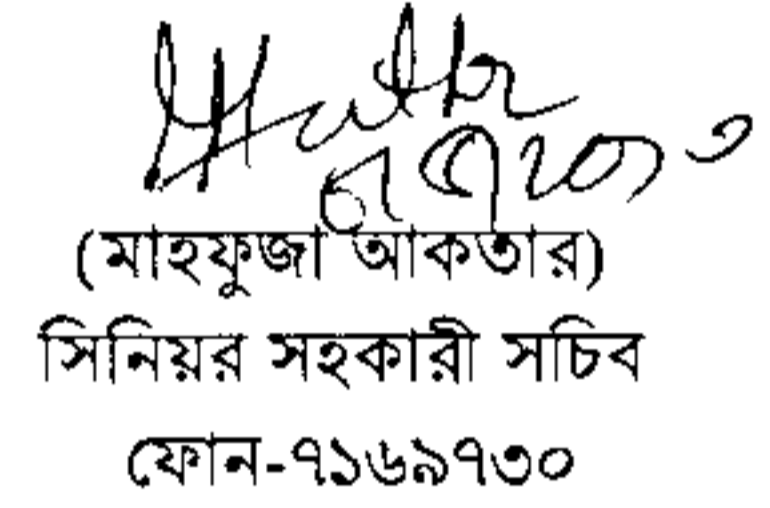 (মাহফুজা আকতার)
সিনিয়র সহকারী সচিব
ফোন-৭১৬৯৭৩০